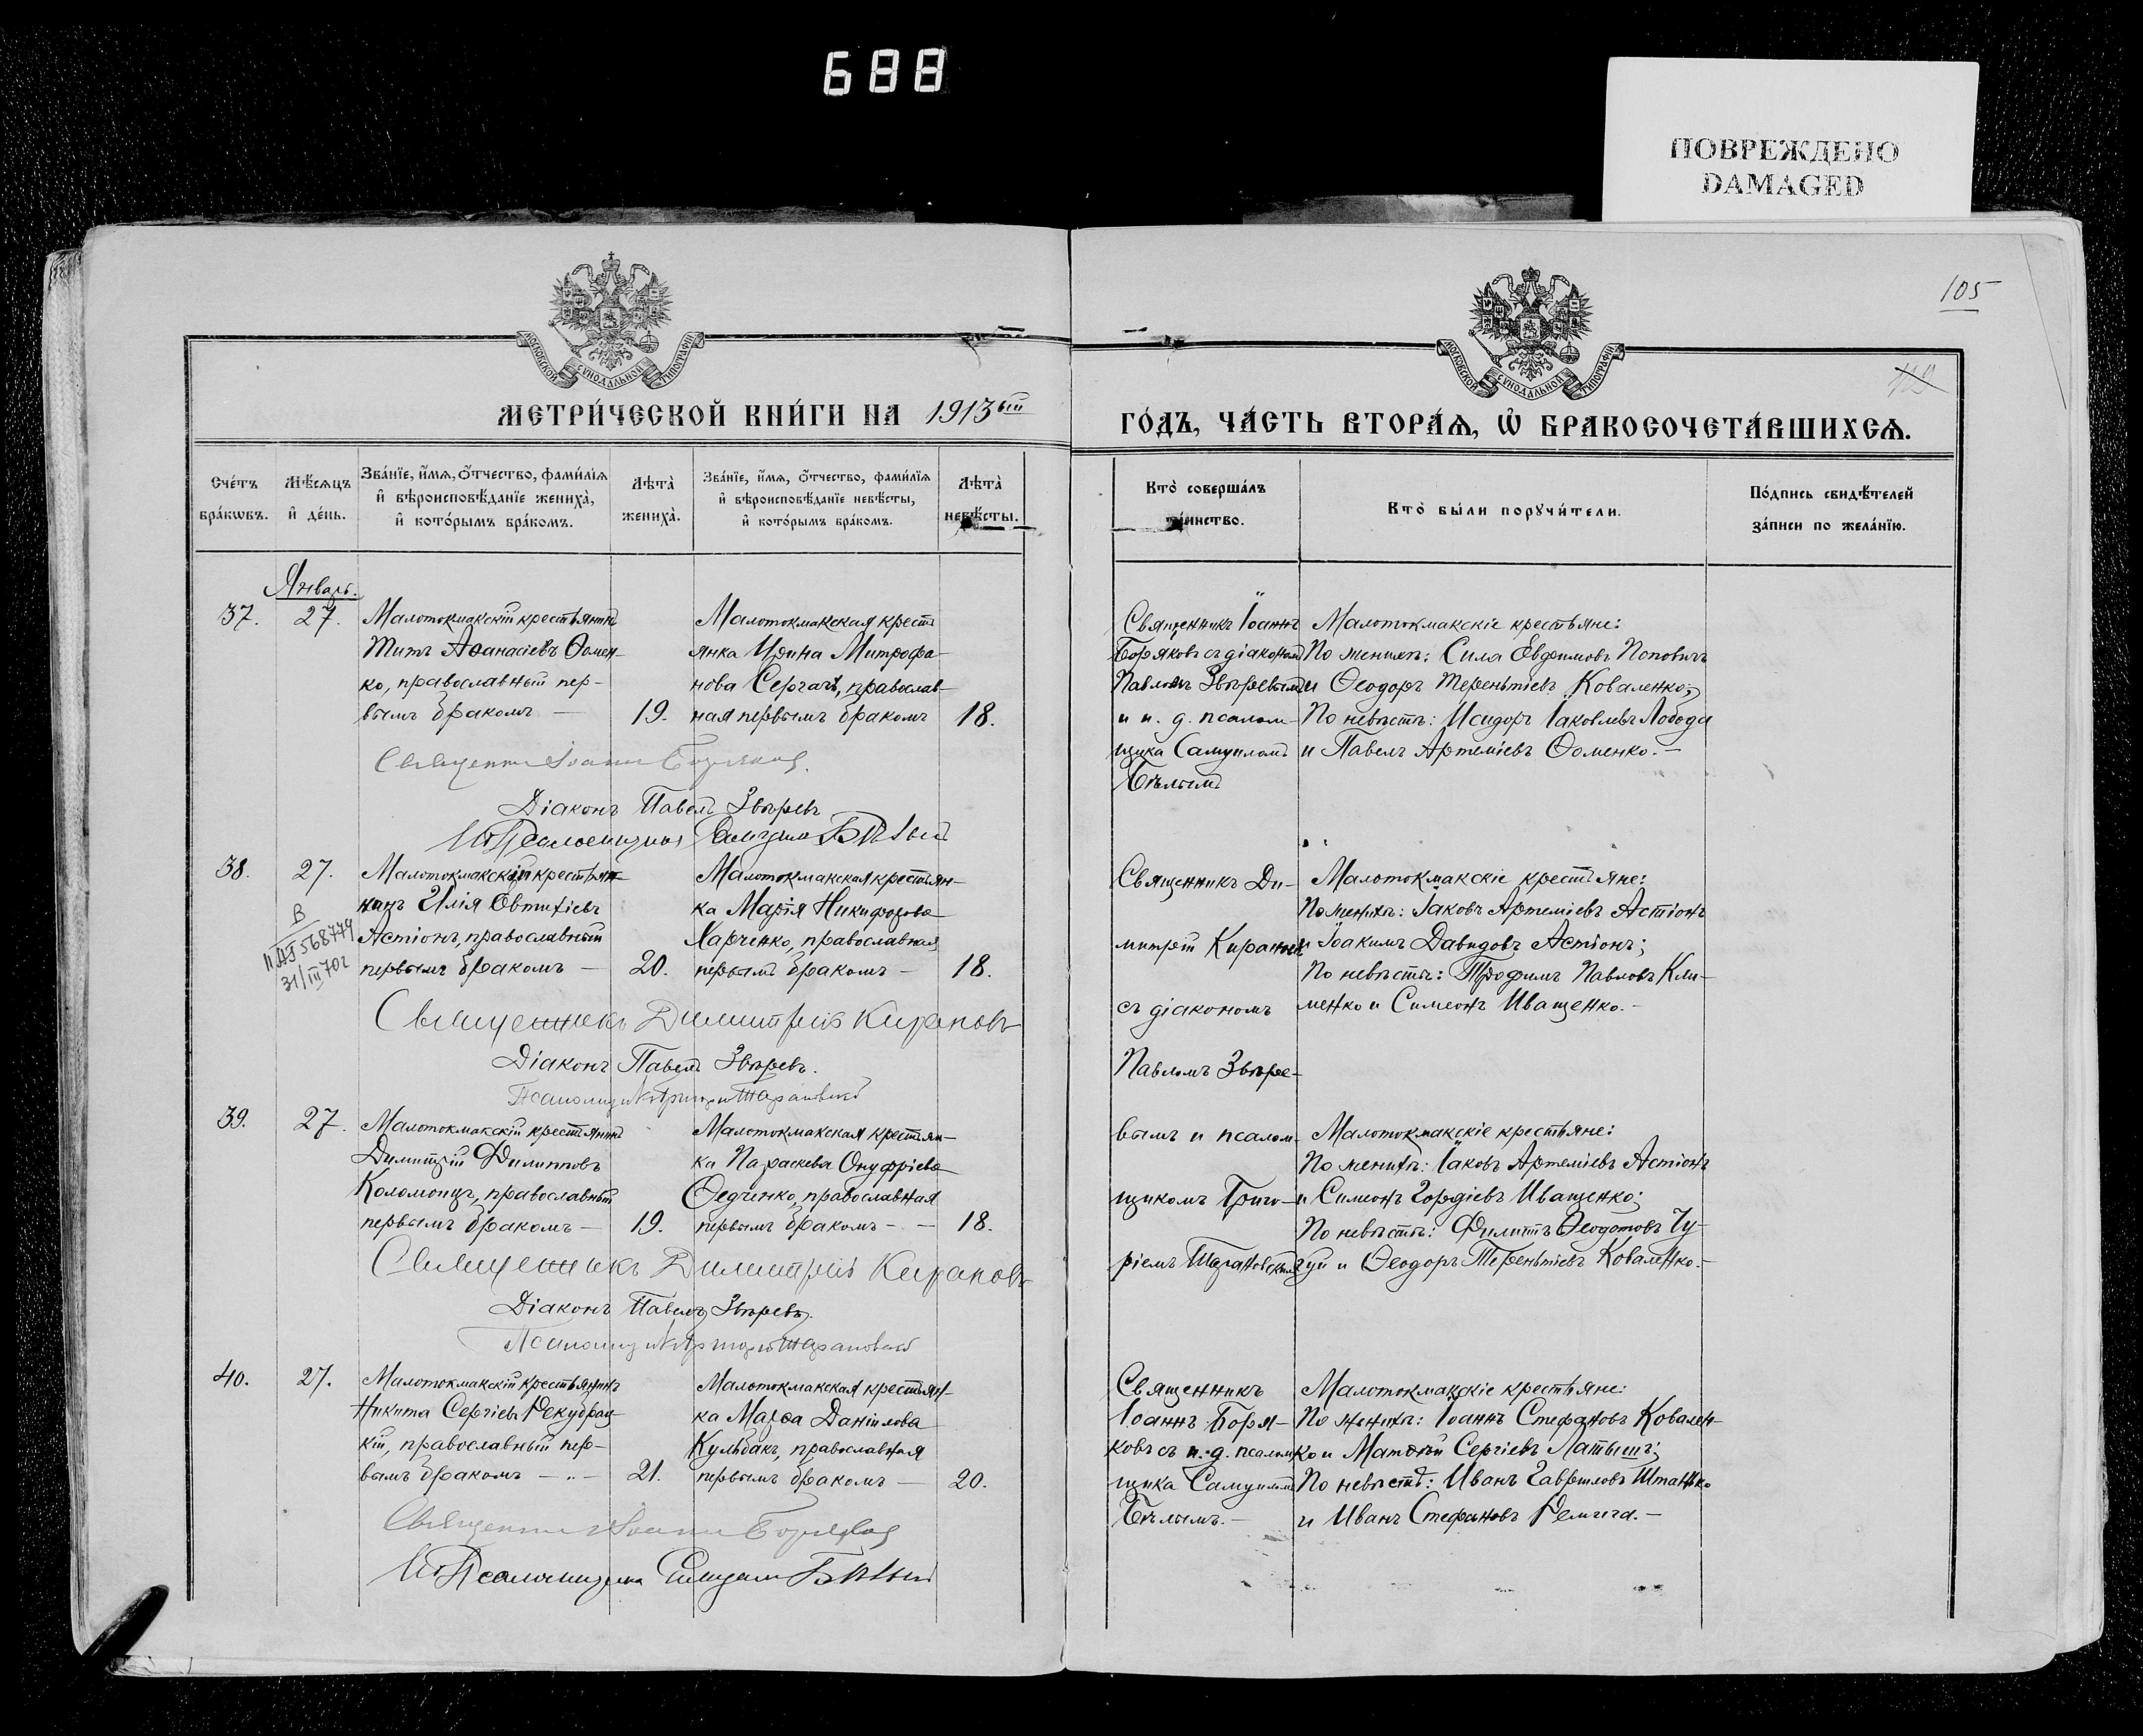 688
ПОВРЕЖДЕНО
DAMAGED
105
119
МОСКОВСКОЙ СѴНОДАЛЬНОЙ ТИПОГРАФІИ
МОСКОВСКОЙ СѴНОДАЛЬНОЙ ТИПОГРАФІИ
МЕТРИ́ЧЕСКОЙ КНИ́ГИ НА 1913ый
ГО́ДЪ, ЧА́СТЬ ВТОРА́Ѧ, Ѡ҆ БРАКОСОЧЕТА́ВШИХСѦ.
Сче́тъ
бра́кѡвъ.
Мѣ́сяцъ
и҆ де́нь.
Зва́нїе, и҆́мѧ, ѻ҆́тчество, фами́лїѧ
и҆ вѣроисповѣ́данїе жениха̀,
и҆ кото́рымъ бра́комъ.
Лѣта̀
жениха̀.
Зва́нїе, и҆́мѧ, ѻ҆́тчество, фами́лїѧ
и҆ вѣроисповѣ́данїе невѣ́сты,
и҆ кото́рымъ бра́комъ.
Лѣта̀
невѣ́сты.
Кто̀ соверша́лъ
та́инство.
Кто̀ бы́ли порꙋчи́тели.
По́дпись свидѣ́телей
за́писи по жела́нїю.
Январь.
37.
27.
Малотокмакскій крестьянинъ
Титъ Аѳанасіевъ Ѳомен-
ко, православный пер-
вымъ бракомъ —
19.
Малотокмакская кресть
янка Ирина Митрофа-
нова Сергачъ, православ-
ная первымъ бракомъ
18.
Священникъ Іоаннъ
Боряковъ съ діакономъ
Павломъ Звѣревымъ
и и. д. псалом-
щика Самуиломъ
Бѣлымъ
Малотокмакскіе крестьяне:
По женихѣ: Сила Евфимовъ Поповичъ
и Ѳеодоръ Терентіевъ Коваленко;
По невѣстѣ: Исидоръ Іаковлевъ Лобода
и Павелъ Артеміевъ Ѳоменко. —
Священникъ Іоаннъ Боряковъ.
Діаконъ Павелъ Звѣревъ
И д Псаломщика Самуилъ Бѣлый
38.
27.
В
II АЯ 568779
31/III 70г
Малотокмакскій крестьян-
нинъ Илія Евтихіевъ
Астіонъ, православный
первымъ бракомъ —
20.
Малотокмакская крестьян-
ка Марія Никифорова
Харченко, православная
первымъ бракомъ —
18.
Священникъ Ди-
митрій Кирановъ
съ діакономъ
Павломъ Звѣре-
вымъ и псалом-
щикомъ Григо-
ріемъ Тарановскимъ
Малотокмакскіе крестьяне:
По женихѣ: Іаковъ Артеміевъ Астіонъ
и Іоакимъ Давидовъ Астіонъ;
По невѣстѣ: Трофимъ Павловъ Кли-
менко и Симеонъ Иващенко. —
Священникъ Димитрій Кирановъ
Діаконъ Павелъ Звѣревъ.
Псаломщикъ Григорій Тарановскій
39.
27.
Малотокмакскій крестьянинъ
Димитрій Филипповъ
Коломоицъ, православный
первымъ бракомъ —
19.
Малотокмакская крестьян-
ка Параскева Онуфріева
Ѳедченко, православная
первымъ бракомъ — —
18.
Малотокмакскіе крестьяне:
По женихѣ: Іаковъ Артеміевъ Астіонъ
и Симеонъ Гордіевъ Иващенко;
По невѣстѣ: Филиппъ Ѳеодотовъ Чу-
гуй и Ѳеодоръ Терентіевъ Коваленко. —
Священникъ Димитрій Кирановъ
Діаконъ Павелъ Звѣревъ.
Псаломщикъ Григорій Тарановскій
40.
27.
Малотокмакскій крестьянинъ
Никита Сергіевъ Рекубрац
кій, православный пер-
вымъ бракомъ — „ —
21.
Малотокмакская крестьян-
ка Марѳа Даніилова
Кульбакъ, православная
первымъ бракомъ —
20.
Священникъ
Іоаннъ Боря-
ковъ съ и. д. псалом-
щика Самуиломъ
Бѣлымъ. —
Малотокмакскіе крестьяне:
По женихѣ: Іоаннъ Стефановъ Ковален-
ко и Матѳей Сергіевъ Латышъ;
По невѣстѣ: Иванъ Гавриловъ Штанько
и Иванъ Стефановъ Ремига. —
Священникъ Іоаннъ Боряковъ
И д Псаломщика Самуилъ Бѣлый